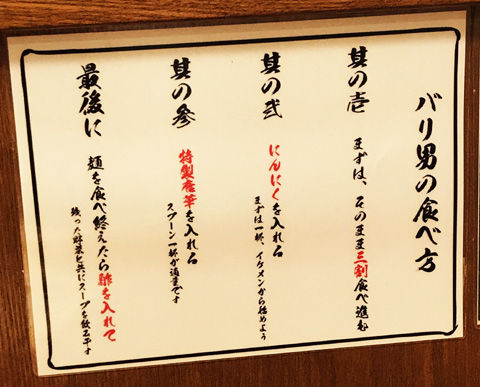 バリ男の食べ方
其の壱 まずは、そのまま三割食べ進む
其の弐 にんにくを入れる
まずは一杯、イケメンから始めよう
其の参 特製唐華を入れる
スプーン一杯が適量です
最後に 麺を食べ終えたら酢を入れて
残った野菜と共にスープを飲み干す